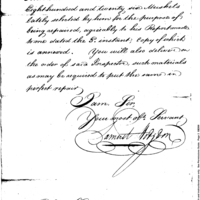 Eight hundred and twenty six Muskets
lately selected by him for the purpose of
being repaired, agreeably to his Report made
to me dated the 5th instant, Copy of which
is annexed. You will also deliver on
the order of said Inspector, such materials
as may be required to put the same in
perfect repair.
I am Sir
Your most obt Servant
Samuel